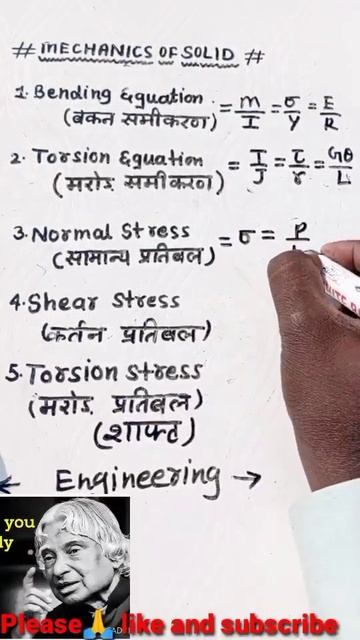 # MECHANICS OF SOLID #
1. Bending Equation = M/I = σ/y = E/R
(बंकन समीकरण)
2. Torsion Equation = T/J = τ/r = Gθ/L
(मरोड़ समीकरण)
3. Normal Stress = σ = P
(सामान्य प्रतिबल)
4. Shear Stress
(कर्तन प्रतिबल)
5. Torsion Stress
(मरोड़ प्रतिबल)
(शाफ्ट)
← Engineering →
you
Please 🙏 like and subscribe